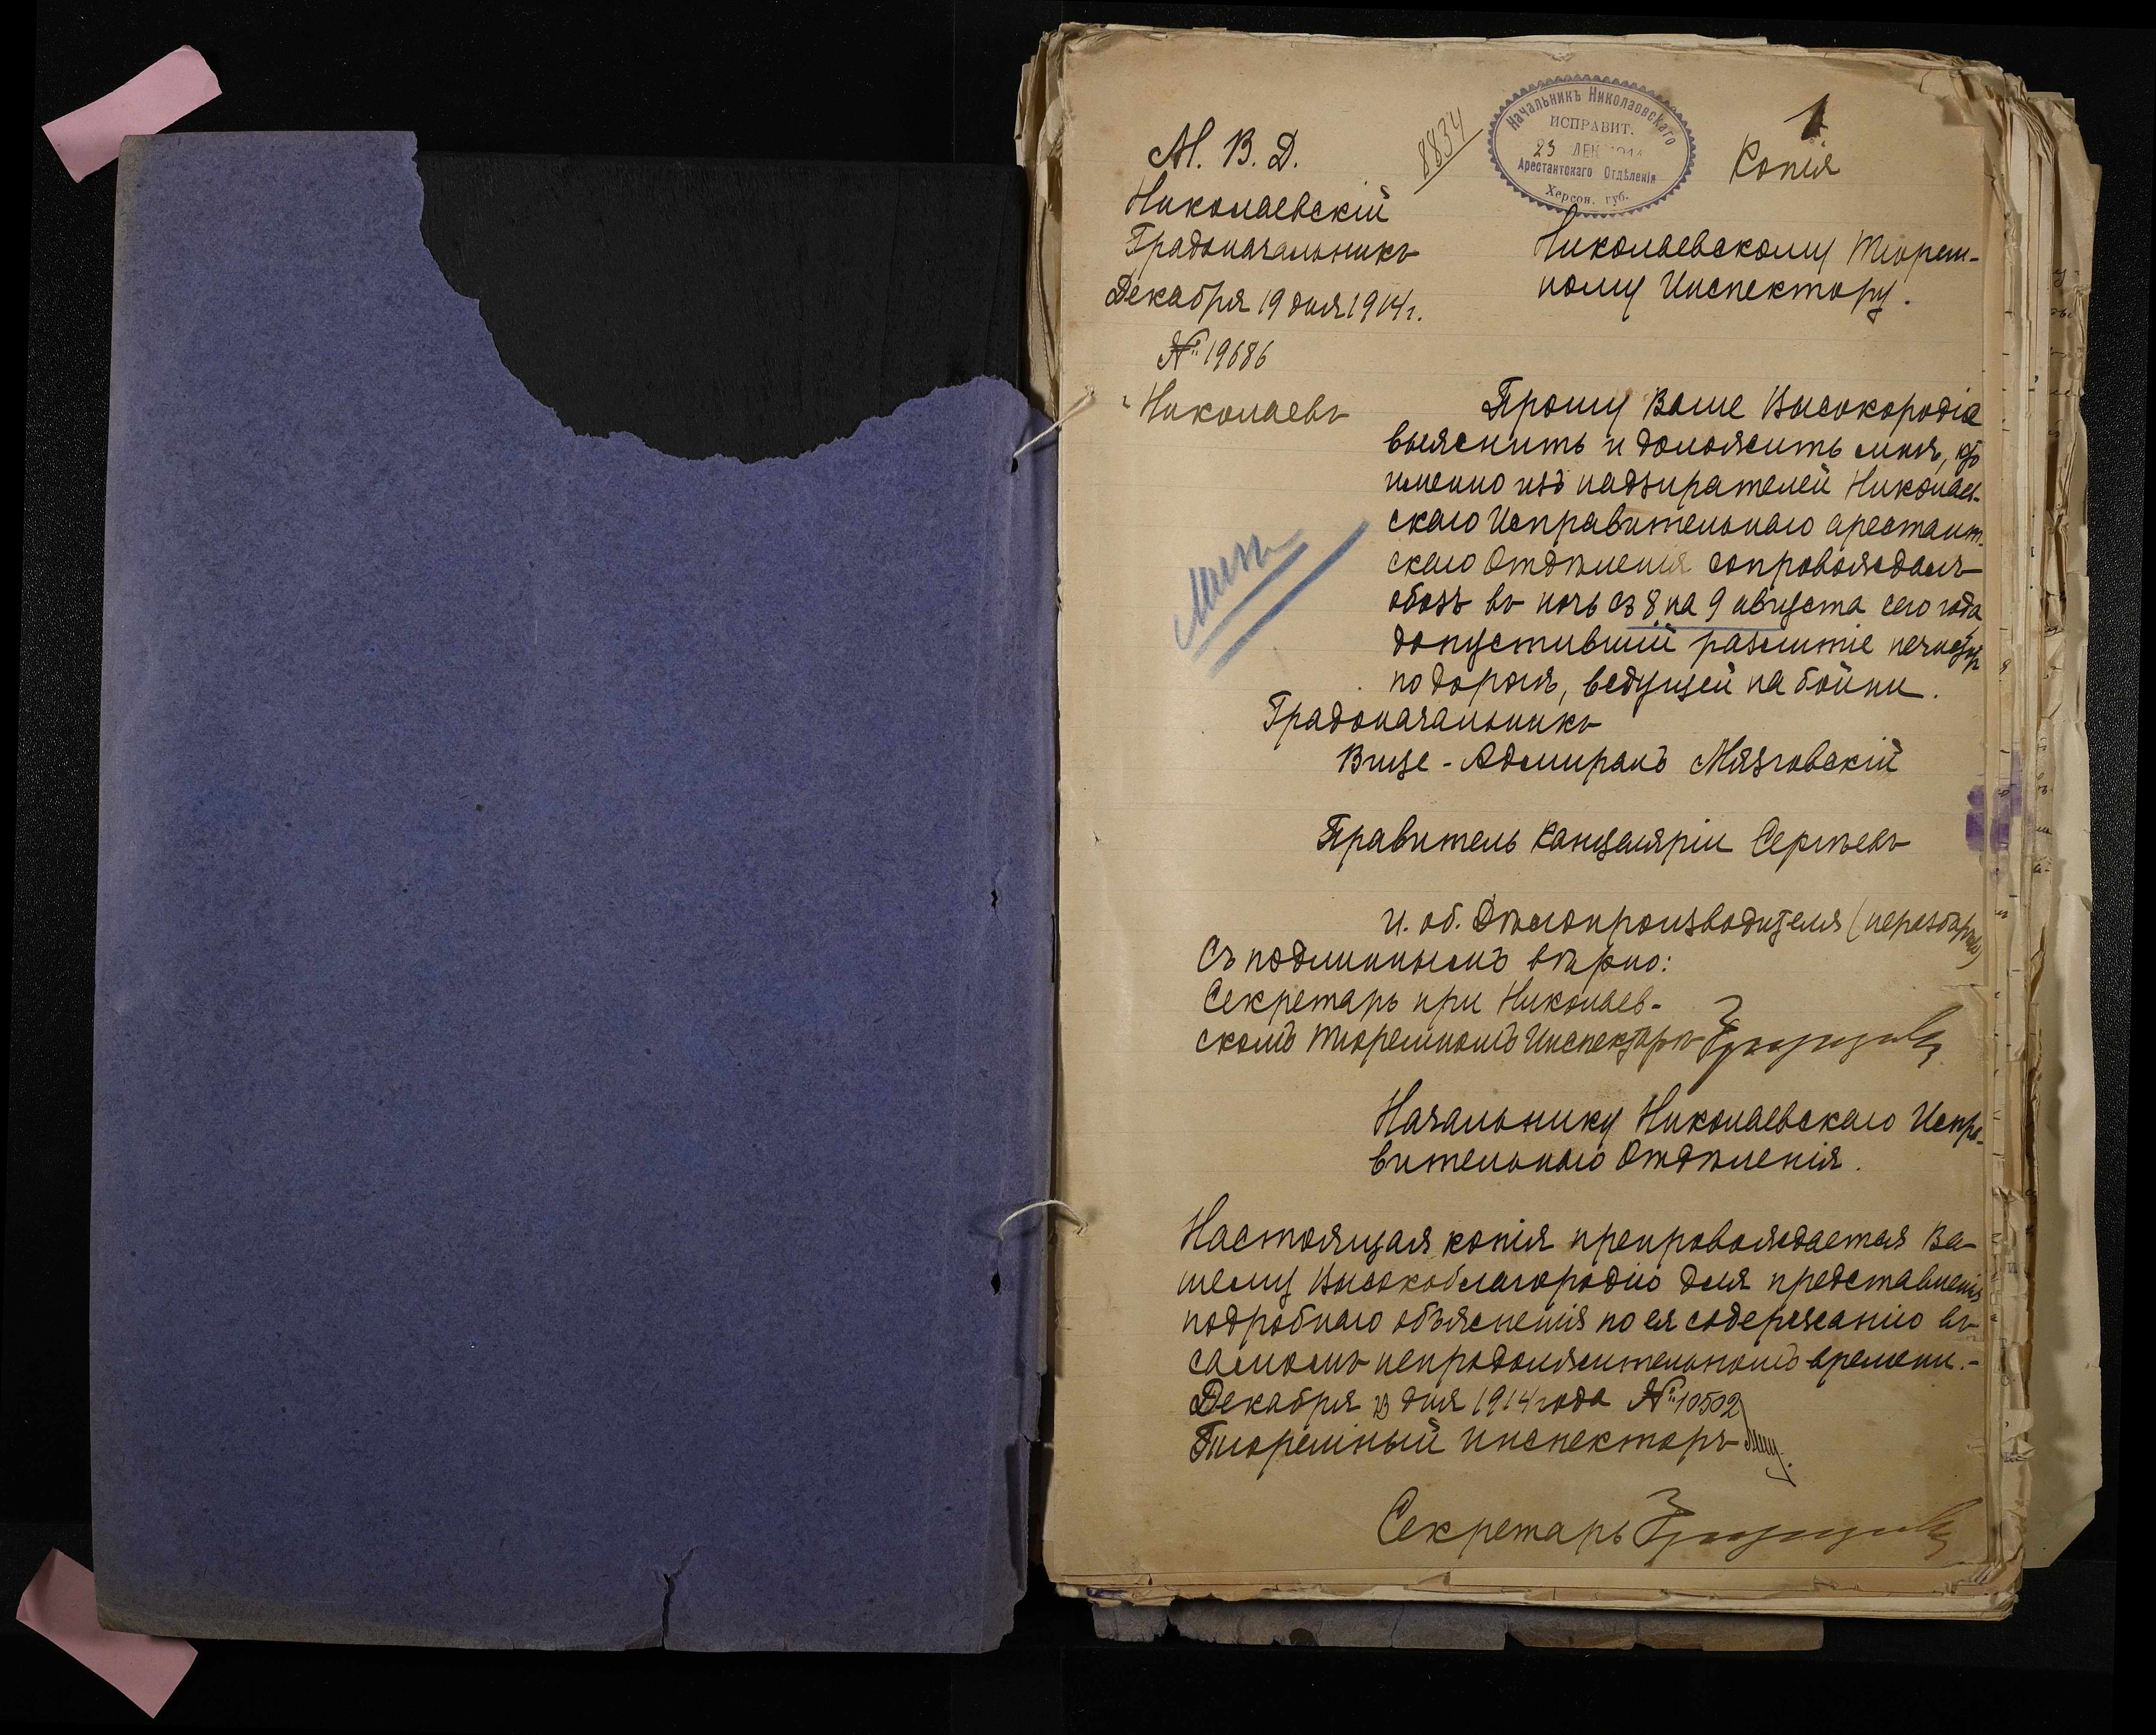 1
Копія
8834
Начальникъ Николаевскаго
ИСПРАВИТ.
23 ДЕК 1914
Арестантскаго Отдѣленія
Херсон. губ.
М. В. Д.
Николаевскій
Градоначальникъ
Декабря 19 дня 1914 г.
№ 19686
г. Николаевъ
Николаевскому Тюрем-
ному Инспектору.
Прошу Ваше Высокородіе
выяснить и доложить мнѣ, кто
именно изъ надзирателей Николаев-
скаго Исправительнаго арестант-
скаго Отдѣленія сопровождалъ
обозъ въ ночь съ 8 на 9 августа сего года,
допустившій разлитіе нечистотъ
по дорогѣ, ведущей на бойни.
Градоначальникъ
Вице-Адмиралъ Мязговскій
Правитель Канцеляріи Сергѣевъ
И. об. Дѣлопроизводителя (неразборчиво)
Съ подлиннымъ вѣрно:
Секретарь при Николаев-
скомъ Тюремномъ Инспекторѣ
Начальнику Николаевскаго Испра-
вительнаго Отдѣленія.
Настоящая копія препровождается Ва-
шему Высокоблагородію для представленія
подробнаго объясненія по ея содержанію въ
самомъ непродолжительномъ времени.-
Декабря дня 1914 года № 10502
Тюремный Инспекторъ
Секретарь